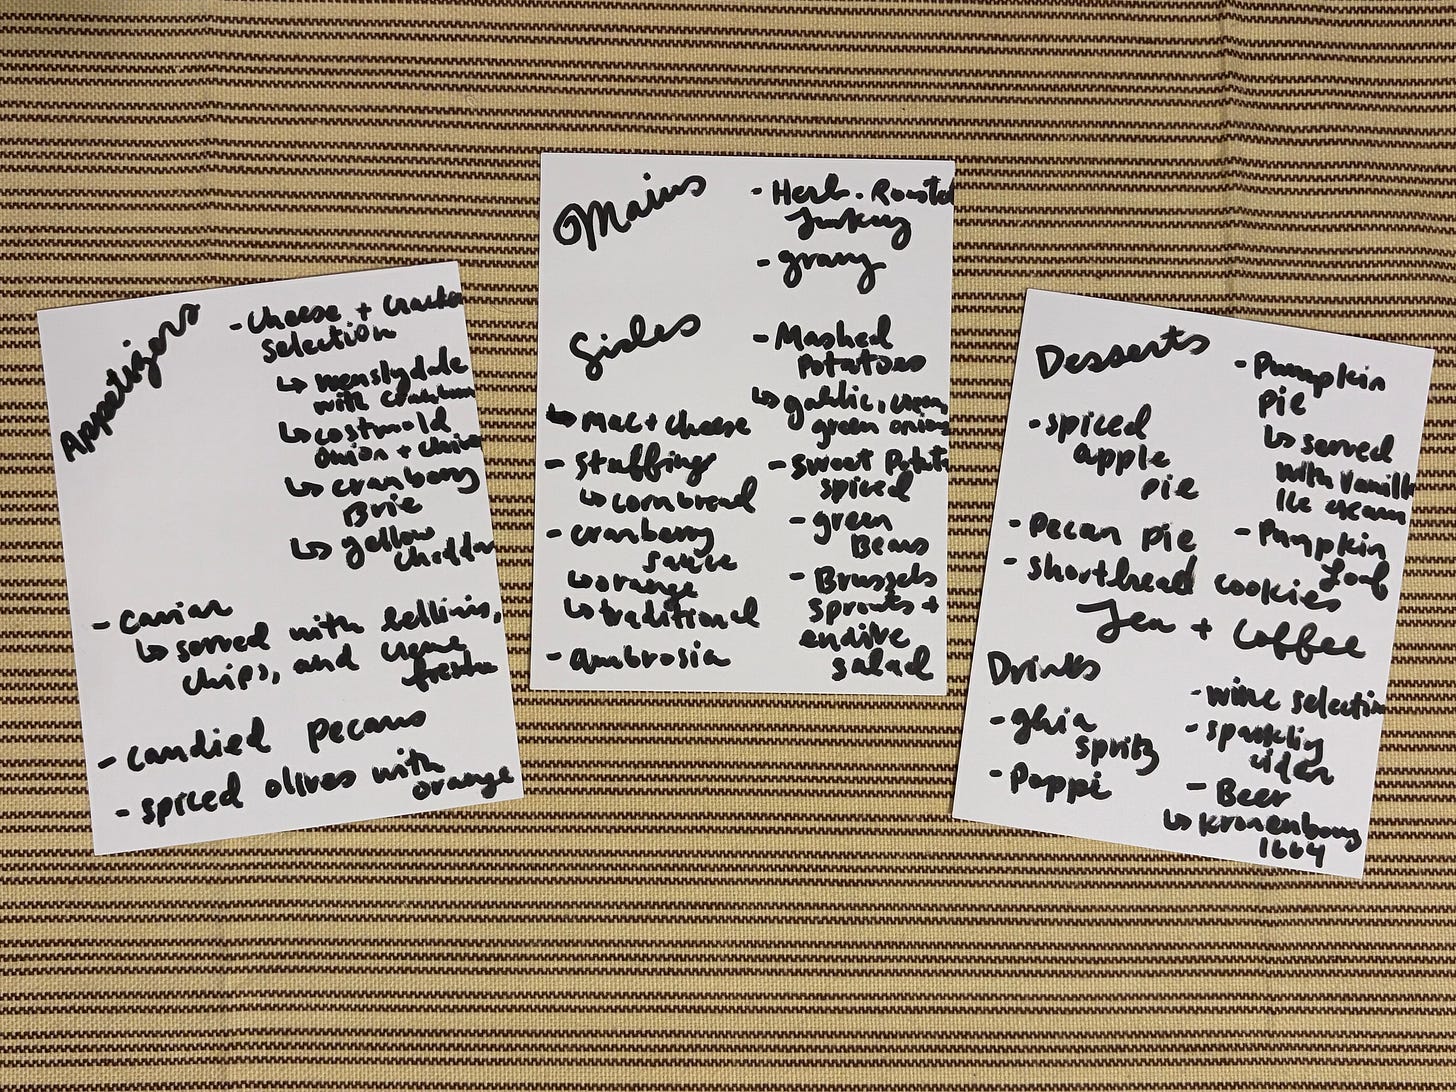 Appetizers
- Cheese + Cracker
selection
↳ wenslydale
with cranberry
↳ costwold
onion + chive
↳ cranberry
Brie
↳ yellow
cheddar
- caviar
↳ served with bellinis,
chips, and creme
freshe
- candied pecans
- spiced olives with
orange
Mains
- Herb-Roasted
Turkey
- gravy
Sides
- Mashed
Potatoes
↳ garlic, cream,
green onions
- sweet Potato
spiced
- green
Beans
- Brussels
sprouts +
endive
salad
↳ mac + cheese
- Stuffing
↳ cornbread
- cranberry
sauce
↳ orange
↳ traditional
- ambrosia
Desserts
- Pumpkin
pie
↳ served
with Vanilla
Ice cream
- Pumpkin
Loaf
- spiced
apple
pie
- Pecan pie
- shortbread cookies
Tea + Coffee
Drinks
- wine selection
- sparkling
cider
- Beer
↳ Kronenbourg
1664
- ghia
spritz
- Poppi